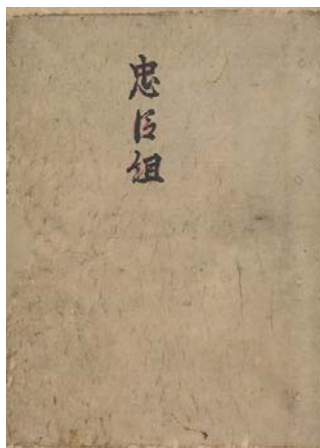 忠臣組